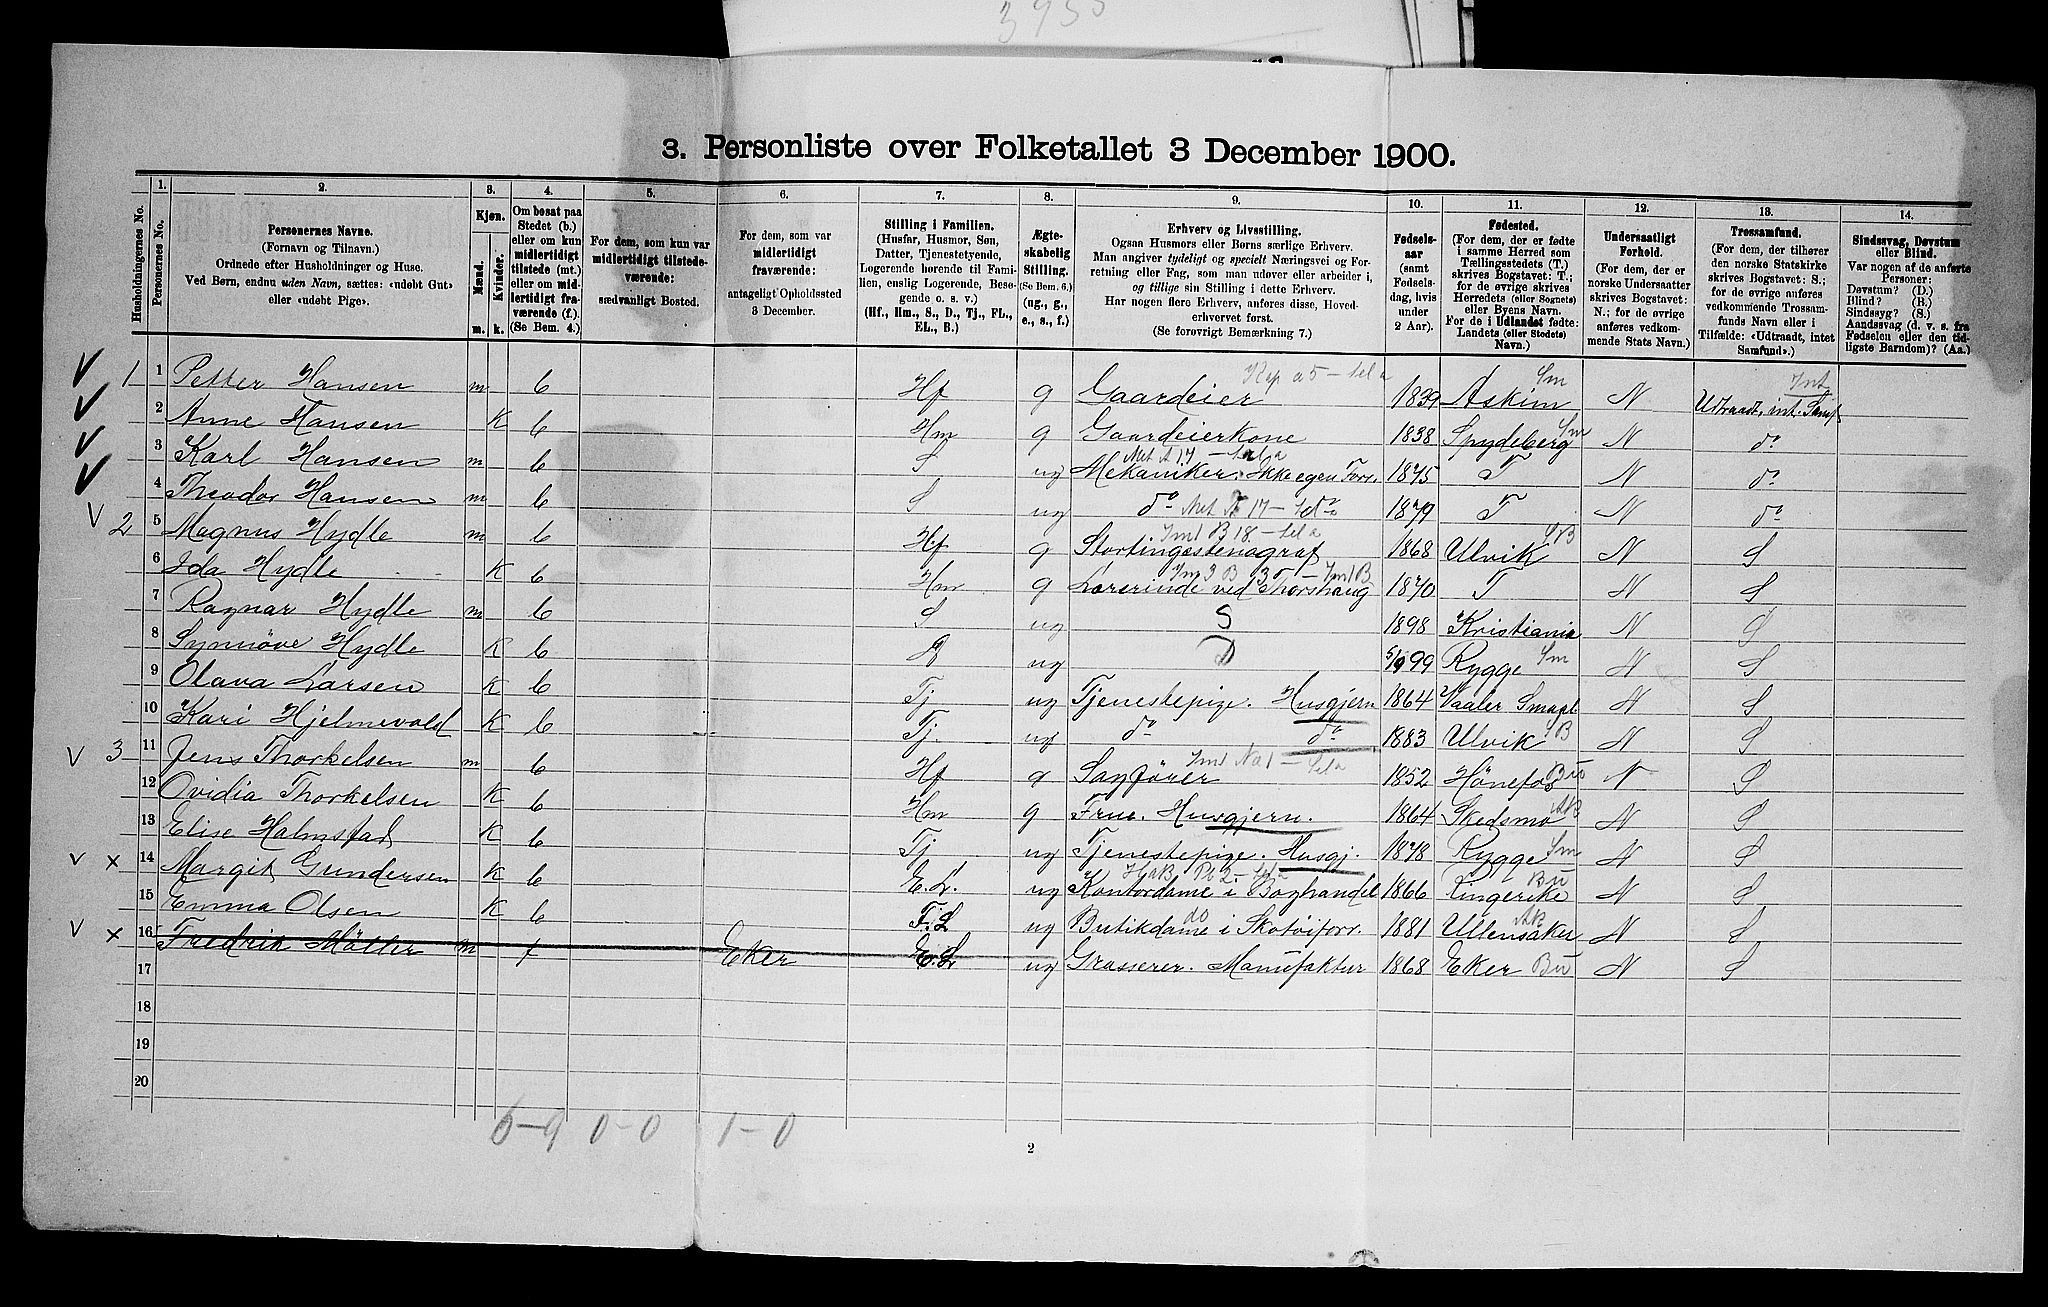 3955
3. Personliste over Folketallet 3 December 1900.
Husholdningernes No.
1.
Personernes No.
2.
Personernes Navne.
(Fornavn og Tilnavn.)
Ordnede efter Husholdninger og Huse.
Ved Børn, endnu uden Navn, sættes: «udøbt Gut»
eller «udøbt Pige».
3.
Kjøn.
Mænd.
Kvinder.
m.
k.
4.
Om bosat paa
Stedet (b.)
eller om kun
midlertidigt
tilstede (mt.)
eller om mid-
lertidigt fra-
værende (f.)
(Se Bem. 4.)
5.
For dem, som kun var
midlertidigt tilstede-
værende:
sædvanligt Bosted.
6.
For dem, som var
midlertidigt
fraværende:
antageligt Opholdssted
3 December.
7.
Stilling i Familien.
(Husfar, Husmor, Søn,
Datter, Tjenestetyende,
Logerende hørende til Fami-
lien, enslig Logerende, Besø-
gende o. s. v.)
(Hf., Hm., S., D., Tj., FL.,
EL., B.)
8.
Ægte-
skabelig
Stilling.
(Se Bem. 6.)
(ug., g.,
e., s., f.)
9.
Erhverv og Livsstilling.
Ogsaa Husmors eller Børns særlige Erhverv.
Man angiver tydeligt og specielt Næringsvei og For-
retning eller Fag, som man udøver eller arbeider i,
og tillige sin Stilling i dette Erhverv.
Har nogen flere Erhverv, anføres disse, Hoved-
erhvervet først.
(Se forøvrigt Bemærkning 7.)
10.
Fødsels-
aar
(samt
Fødsels-
dag, hvis
under
2 Aar).
11.
Fødested.
(For dem, der er fødte
i samme Herred som
Tællingsstedets (T.)
skrives Bogstavet: T.;
for de øvrige skrives
Herredets (eller Sognets)
eller Byens Navn.
For de i Udlandet fødte:
Landets (eller Stedets)
Navn.)
12.
Undersaatligt
Forhold.
(For dem, der er
norske Undersaatter
skrives Bogstavet:
N.; for de øvrige
anføres vedkom-
mende Stats Navn.)
13.
Trossamfund.
(For dem, der tilhører
den norske Statskirke
skrives Bogstavet: S.;
for de øvrige anføres
vedkommende Trossam-
funds Navn eller i
Tilfælde: «Udtraadt, intet
Samfund».)
14.
Sindssvag, Døvstum
eller Blind.
Var nogen af de anførte
Personer:
Døvstum? (D.)
Blind? (B.)
Sindssyg? (S.)
Aandssvag (d. v. s. fra
Fødselen eller den tid-
ligste Barndom)? (Aa.)
1 1 Petter Hansen m b Hf g Gaardeier 1839 Askim Sm N Udtraadt, int. Samf
2 Anne Hansen K b Hm g Gaardeierkone 1838 Spydeberg Sm N do
3 Karl Hansen m b S ug Mekaniker. Ikke egen Forr. 1875 T N do
4 Theodor Hansen m b S ug do 1879 T N do
2 5 Magnus Hydle m b Hf g Stortingsstenograf 1868 Ulvik SB N S
6 Ida Hydle K b Hm g Lærerinde ved Thorshaug 1870 T N S
7 Ragnar Hydle m b S ug S 1898 Kristiania N S
8 Synnøve Hydle K b D ug D 5/9 99 Rygge Sm N S
9 Olava Larsen K b Tj ug Tjenestepige. Husgjern 1864 Vaaler Smaal N S
10 Kari Hjelmevold K b Tj. ug do do 1883 Ulvik SB N S
3 11 Jens Thorkelsen m b Hf g Sagfører 1852 Hönefos Bu N S
12 Ovidia Thorkelsen K b Hm g Frue. Husgjern. 1864 Skedsmo AB N S
13 Elise Halmstad K b Tj ug Tjenestepige. Husgj. 1878 Rygge Sm N S
x 14 Margit Gundersen K b E.L. ug Kontordame i Boghandel 1866 Ringerike Bu N S
15 Emma Olsen K b F.L ug Butikdame i Skotøiforr. 1881 Ullensaker AB N S
x 16 Fredrik Möller m f Eker E.L ug Grosserer. Manufaktur 1868 Eker Bu N S
17
18
19
20
6-9 0-0 1-0
2